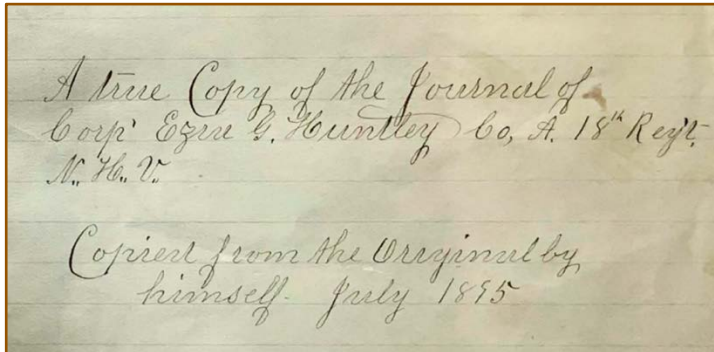 A true Copy of the Journal of
Corp' Ezra G. Huntley Co, A. 18th Reg't.
N. H. V.
Copied from the Original by
himself. July 1895